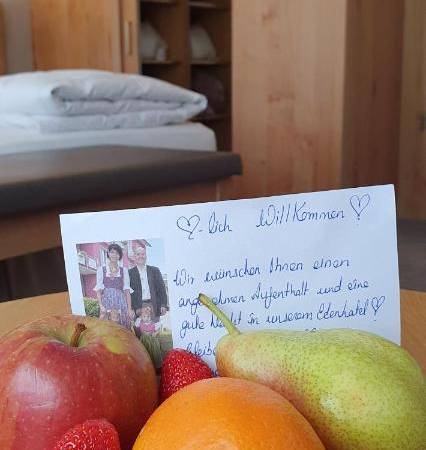 ♡-lich Willkommen ♡!
Wir wünschen Ihnen einen
angenehmen Aufenthalt und eine
gute Nacht in unserem Edenhotel ♡!